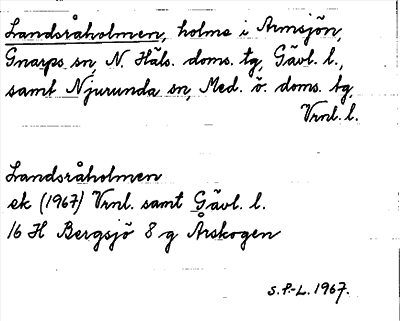 Landsråholmen, holme i Armsjön,
Gnarps sn N. Häls. doms. tg, Gävl. l.,
samt Njurunda sn, Med. ö. doms. tg,
Vrnl. l.
Landsråholmen
ek (1967) Vrnl. samt Gävl. l.
16 H Bergsjö 8 g Årskogen
S. P.-L. 1967.